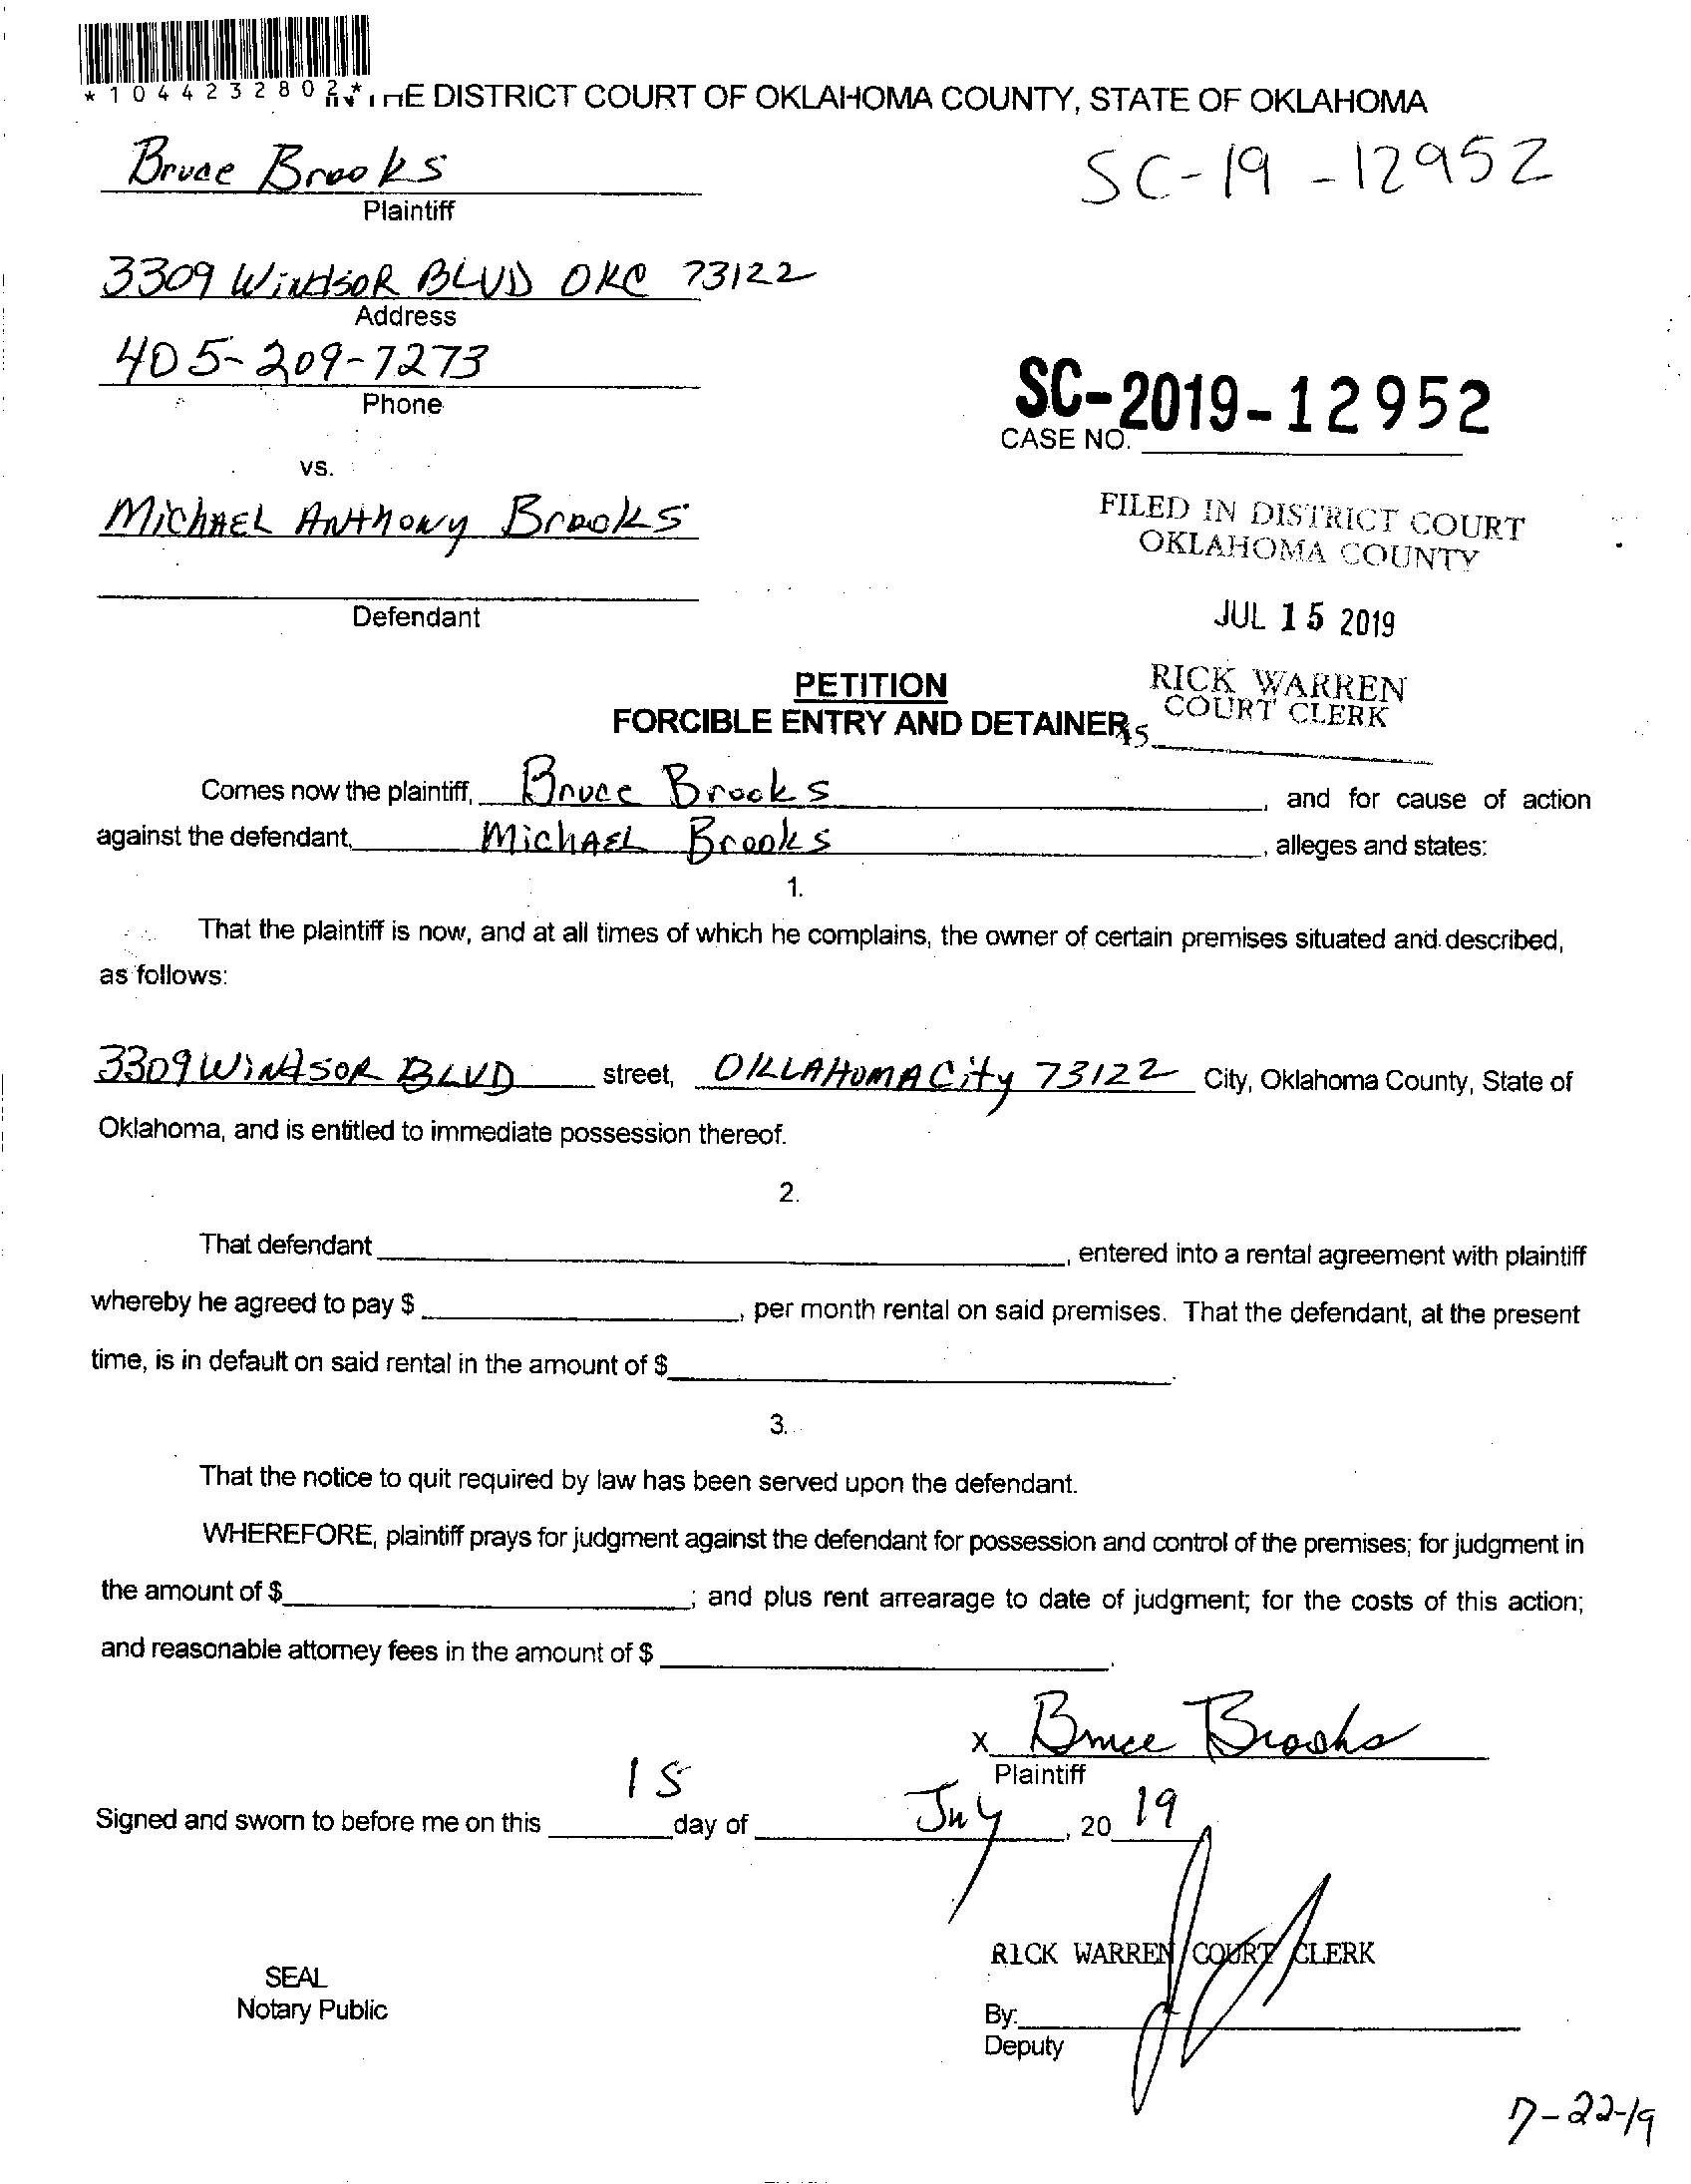 *1044232802*
THE DISTRICT COURT OF OKLAHOMA COUNTY, STATE OF OKLAHOMA
Bruce Brooks
SC-19-12952
Plaintiff
3309 Windsor BLVD OKC 73122
Address
405-209-7273
Phone
SC-2019-12952
CASE NO.
vs.
Michael Anthony Brooks
FILED IN DISTRICT COURT
OKLAHOMA COUNTY
Defendant
JUL 15 2019
PETITION
RICK WARREN
COURT CLERK
FORCIBLE ENTRY AND DETAINER
Comes now the plaintiff, Bruce Brooks, and for cause of action
against the defendant, Michael Brooks, alleges and states:
1.
That the plaintiff is now, and at all times of which he complains, the owner of certain premises situated and described,
as follows:
3309 Windsor BLVD street, OKLAHOMA City 73122 City, Oklahoma County, State of
Oklahoma, and is entitled to immediate possession thereof.
2.
That defendant, entered into a rental agreement with plaintiff
whereby he agreed to pay $, per month rental on said premises. That the defendant, at the present
time, is in default on said rental in the amount of $.
3.
That the notice to quit required by law has been served upon the defendant.
WHEREFORE, plaintiff prays for judgment against the defendant for possession and control of the premises; for judgment in
the amount of $; and plus rent arrearage to date of judgment; for the costs of this action;
and reasonable attorney fees in the amount of $.
x Bruce Brooks
Plaintiff
Signed and sworn to before me on this 15 day of July, 2019
RICK WARREN COURT CLERK
SEAL
Notary Public
By:
Deputy
7-22-19